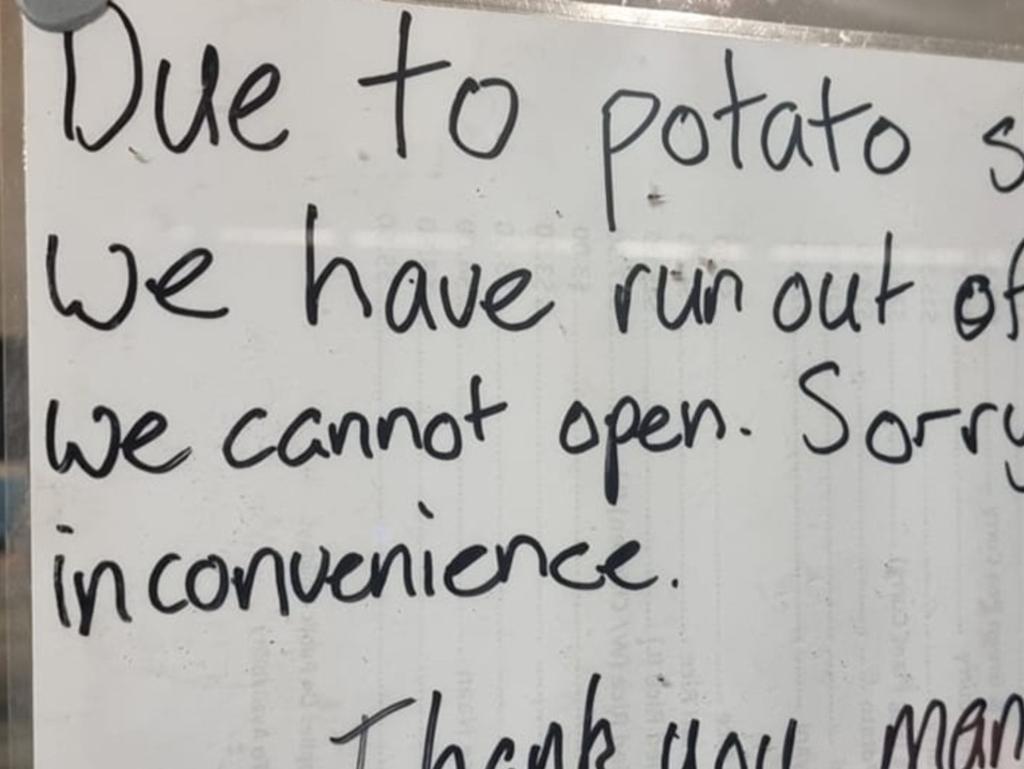 Due to potato s
we have run out of
we cannot open. Sorry
inconvenience.
Thank you man